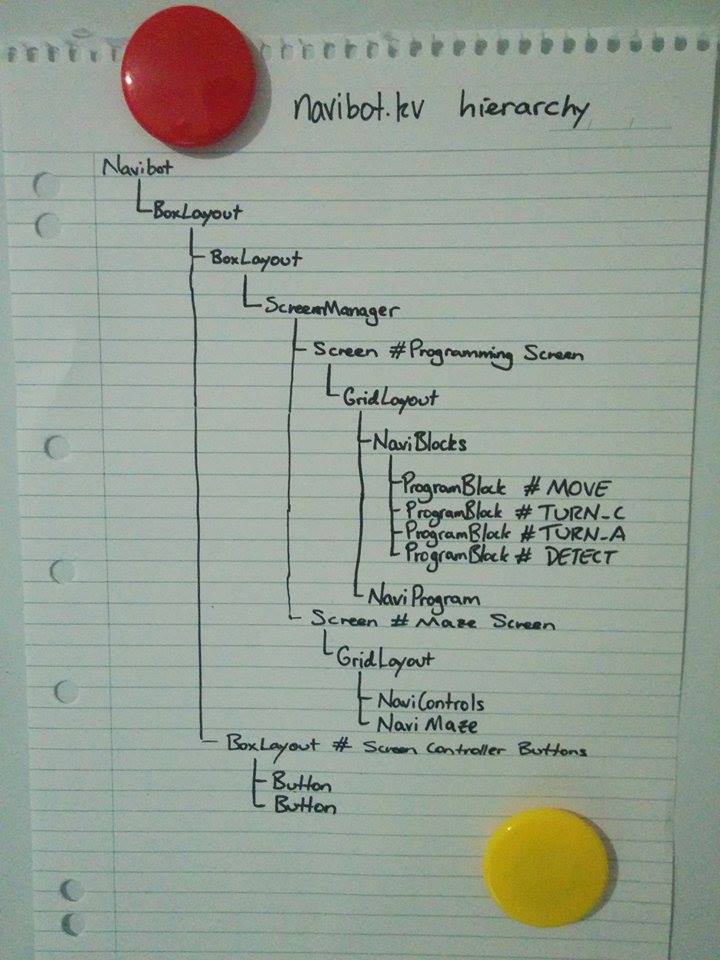 navibot.kv hierarchy
Navibot
BoxLayout
BoxLayout
ScreenManager
Screen #Programming Screen
GridLayout
NaviBlocks
ProgramBlock # MOVE
ProgramBlock # TURN_C
ProgramBlock # TURN_A
ProgramBlock # DETECT
NaviProgram
Screen # Maze Screen
GridLayout
NaviControls
NaviMaze
BoxLayout # Screen Controller Buttons
Button
Button